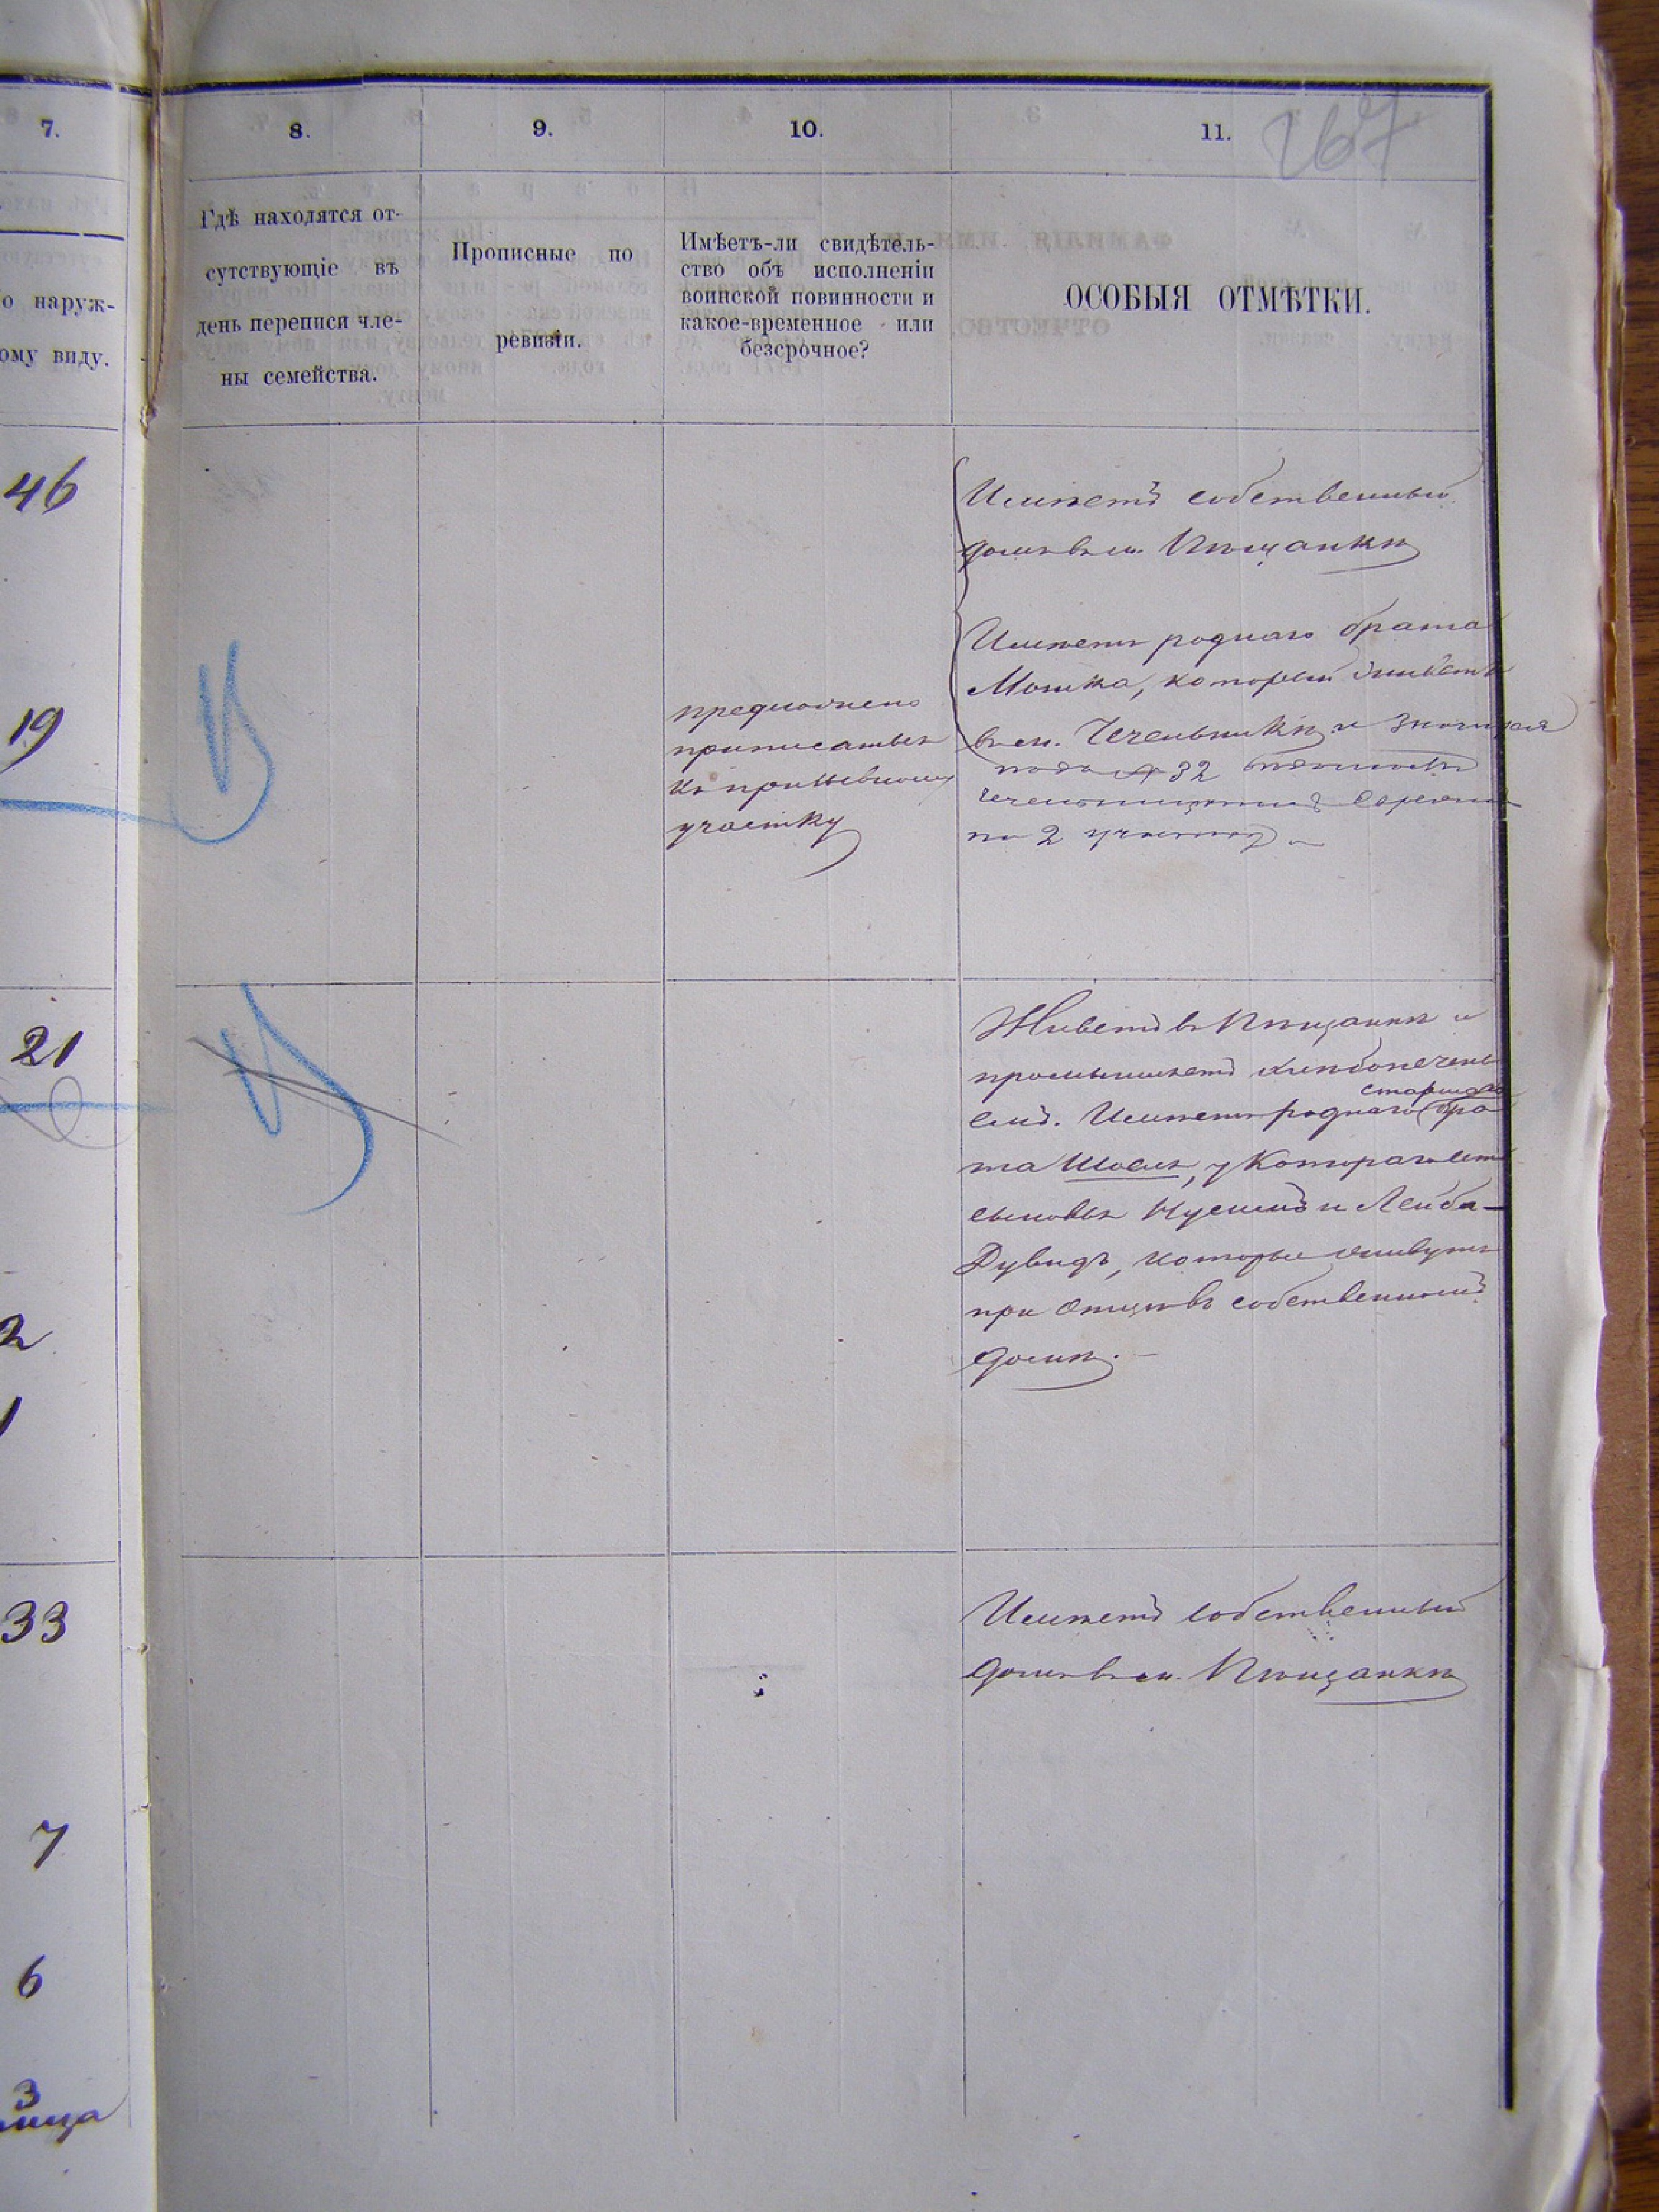 267
7.
8.
9.
10.
11.
о наруж-
ому виду.
Гдѣ находятся от-
сутствующіе въ
день переписи чле-
ны семейства.
Прописные по
ревизіи.
Имѣетъ-ли свидѣтель-
ство объ исполненіи
воинской повинности и
какое-временное или
безсрочное?
ОСОБЫЯ ОТМѢТКИ.
46
Имѣетъ собственный
домъ въ м. Пѣщанкѣ
19
предложено
приписаться
къ призывному
участку
Имѣетъ роднаго брата
Мошка, который живетъ
въ м. Чечельникѣ и
подъ № 32
по 2 участку
21
Живетъ въ Пѣщанкѣ и
промышляетъ хлѣбопечень
старшаго
емъ. Имѣетъ роднаго бра
та, у котораго есть
сыновья Нусимъ и Лейба-
Дувидъ, которые живутъ
при отцѣ въ собственномъ
домѣ.
2
1
33
Имѣетъ собственный
домъ въ м. Пѣщанкѣ
7
6
3